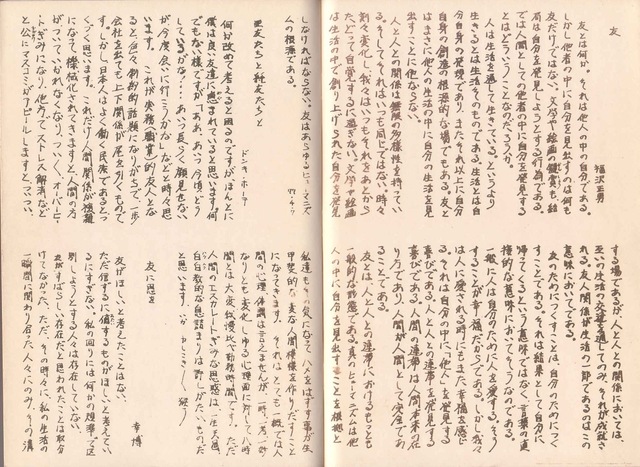 友
福沢正男
友とは何か。それは他人の中の自分である。
しかし他者の中に自分を見出すのは何も
友だけではない。文学や絵画の鑑賞も、結
局は自分を発見しようとする行為である。
では人間としての他者の中に自分を発見する
とはどういうことなのだろうか。
人は生活を通して人である。というより
生きるとは生活そのものである。生活とは自
分自身の発現であり、またそれ以上に自分
自身の創造の根源的な場でもある。友と
はまさに他人の生活の中に自分の生活を見
出すことに他ならない。
人と人との関係は無限の多様性を持ってい
る。そしてそれはいつも同じではない。時々
刻々変化し我々はいつもそれをあとから
たどって自覚するに過ぎない。文学や絵画
は生活の中で創り上げられた自分を発見
する場であるが、人との関係においては、
互いの生活の交錯を通してのみ、それが成就さ
れる。友人関係が生活の一部であるのはこの
意味においてである。
友のためにつくすことは、自分のためにつく
すことである。それは結果として自分に
帰ってくるという意味ではなく、言葉の直
接的な意味においてそうなのである。
一般に人は自分のために人を愛する。愛
することが幸福だからである。しかし我々
は人に愛される時にもまた幸福を感じ
る。それは自分の中に「他人」を発見する
喜びである。人と人との連帯を発見する
喜びである。人間の連帯は人間本来の在
り方であり、人間が人間として完全であ
ることである。
友とは、人と人との連帯におけるもっとも
一般的な形態である。真のヒューマニズムは他
人の中に自分を見出すことを根拠と
しなければならない。友はあらゆるヒューマニズ
ムの根源である。
77.4.7
悪友たちと親友たちと
ドンキ・ホーテ
何か改めて考えると困るのですが、ほんとに
僕は良い友達に恵まれていると思います。何
でもない様ですが「ああ、あいつ今頃どう
しているかな。……あいつ長く顔見せない
が、今度会いに行こうか」などと時々思
います。これが実務(職業)的友人とな
ると、仲々 的話題になりがちで、一歩
会社を出ても上下関係が尾を引くもので
す。しかし日本人はよく働く民族であるとつ
くづく思います。これだけ人間関係が複雑
になって、機械化されてきますと、人間の方
がついていかれなくなり、ついつい、オーバーヒー
トぎみになり、他方でストレス解消など
と公にマスコミがアピールしますと、ついつい、
私達もその気になって、ハメをはずす事が生
になってきます。それは、とっても一概では人
間の心理 は言えませんが、一時一秒
なりとも変化しゆる心理面に対して八時
間とは大変 勤務時間です。ただ
人間のエスカレートぎみな思惑は一
白日 的な息詰まりは哀しがたいものだ
と思います。
友に思う
幸博
友がほしいと考えたことはない。
ただ信ずるに値するものがほしいと考えてい
るにすぎない。私の回りには何かの規準で区
別しようとする人々は存在していない。
友がすばらしい存在だと思われたことは取分
けてなかった。ただ、その時々に、私の生活の
一瞬間に関わり合った人々にのみ、その満